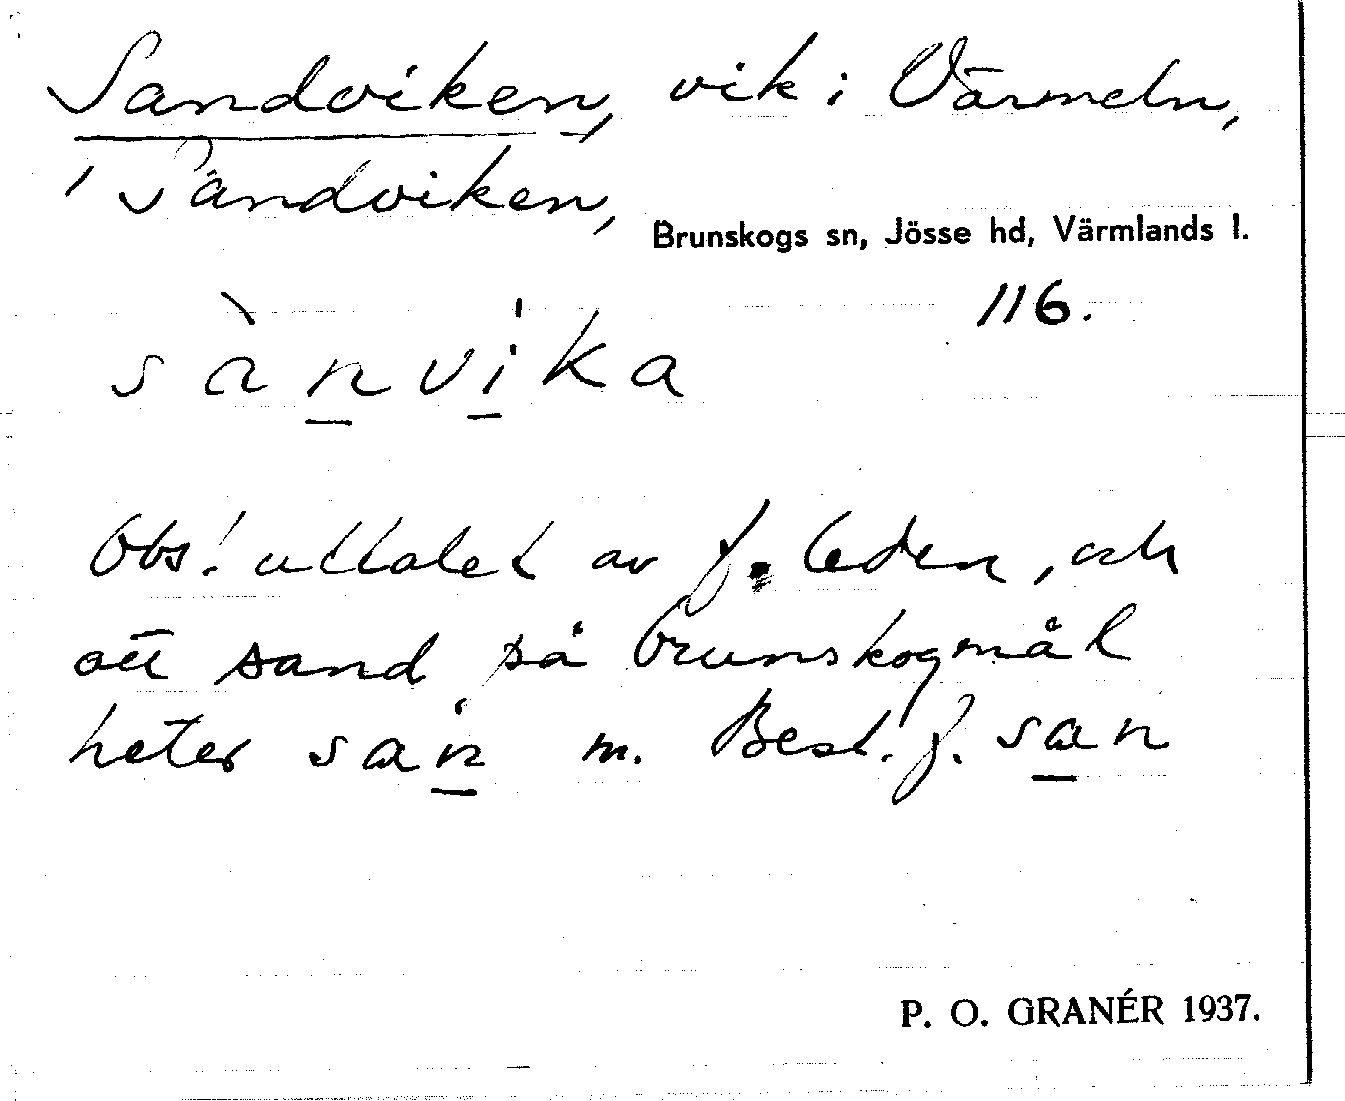 Sandviken, vik i Värmeln,
i Sandviken,
Brunskogs sn, Jösse hd, Värmlands l.
116.
sànvika
Obs! uttalet av f. leden, och
att sand på brunskogmål
heter san m. Best. f. san
P. O. GRANÉR 1937.